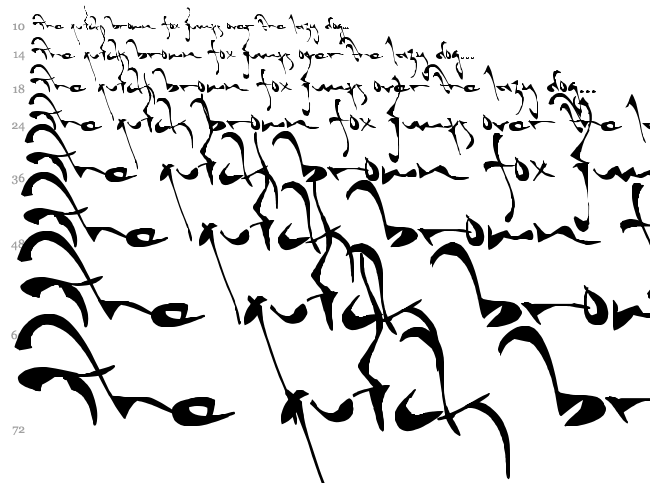 10 The quick brown fox jumps over the lazy dog...
14 The quick brown fox jumps over the lazy dog...
18 The quick brown fox jumps over the lazy dog...
24 The quick brown fox jumps over the
36 The quick brown fox
48 The quick brown
The quick
72 The quick